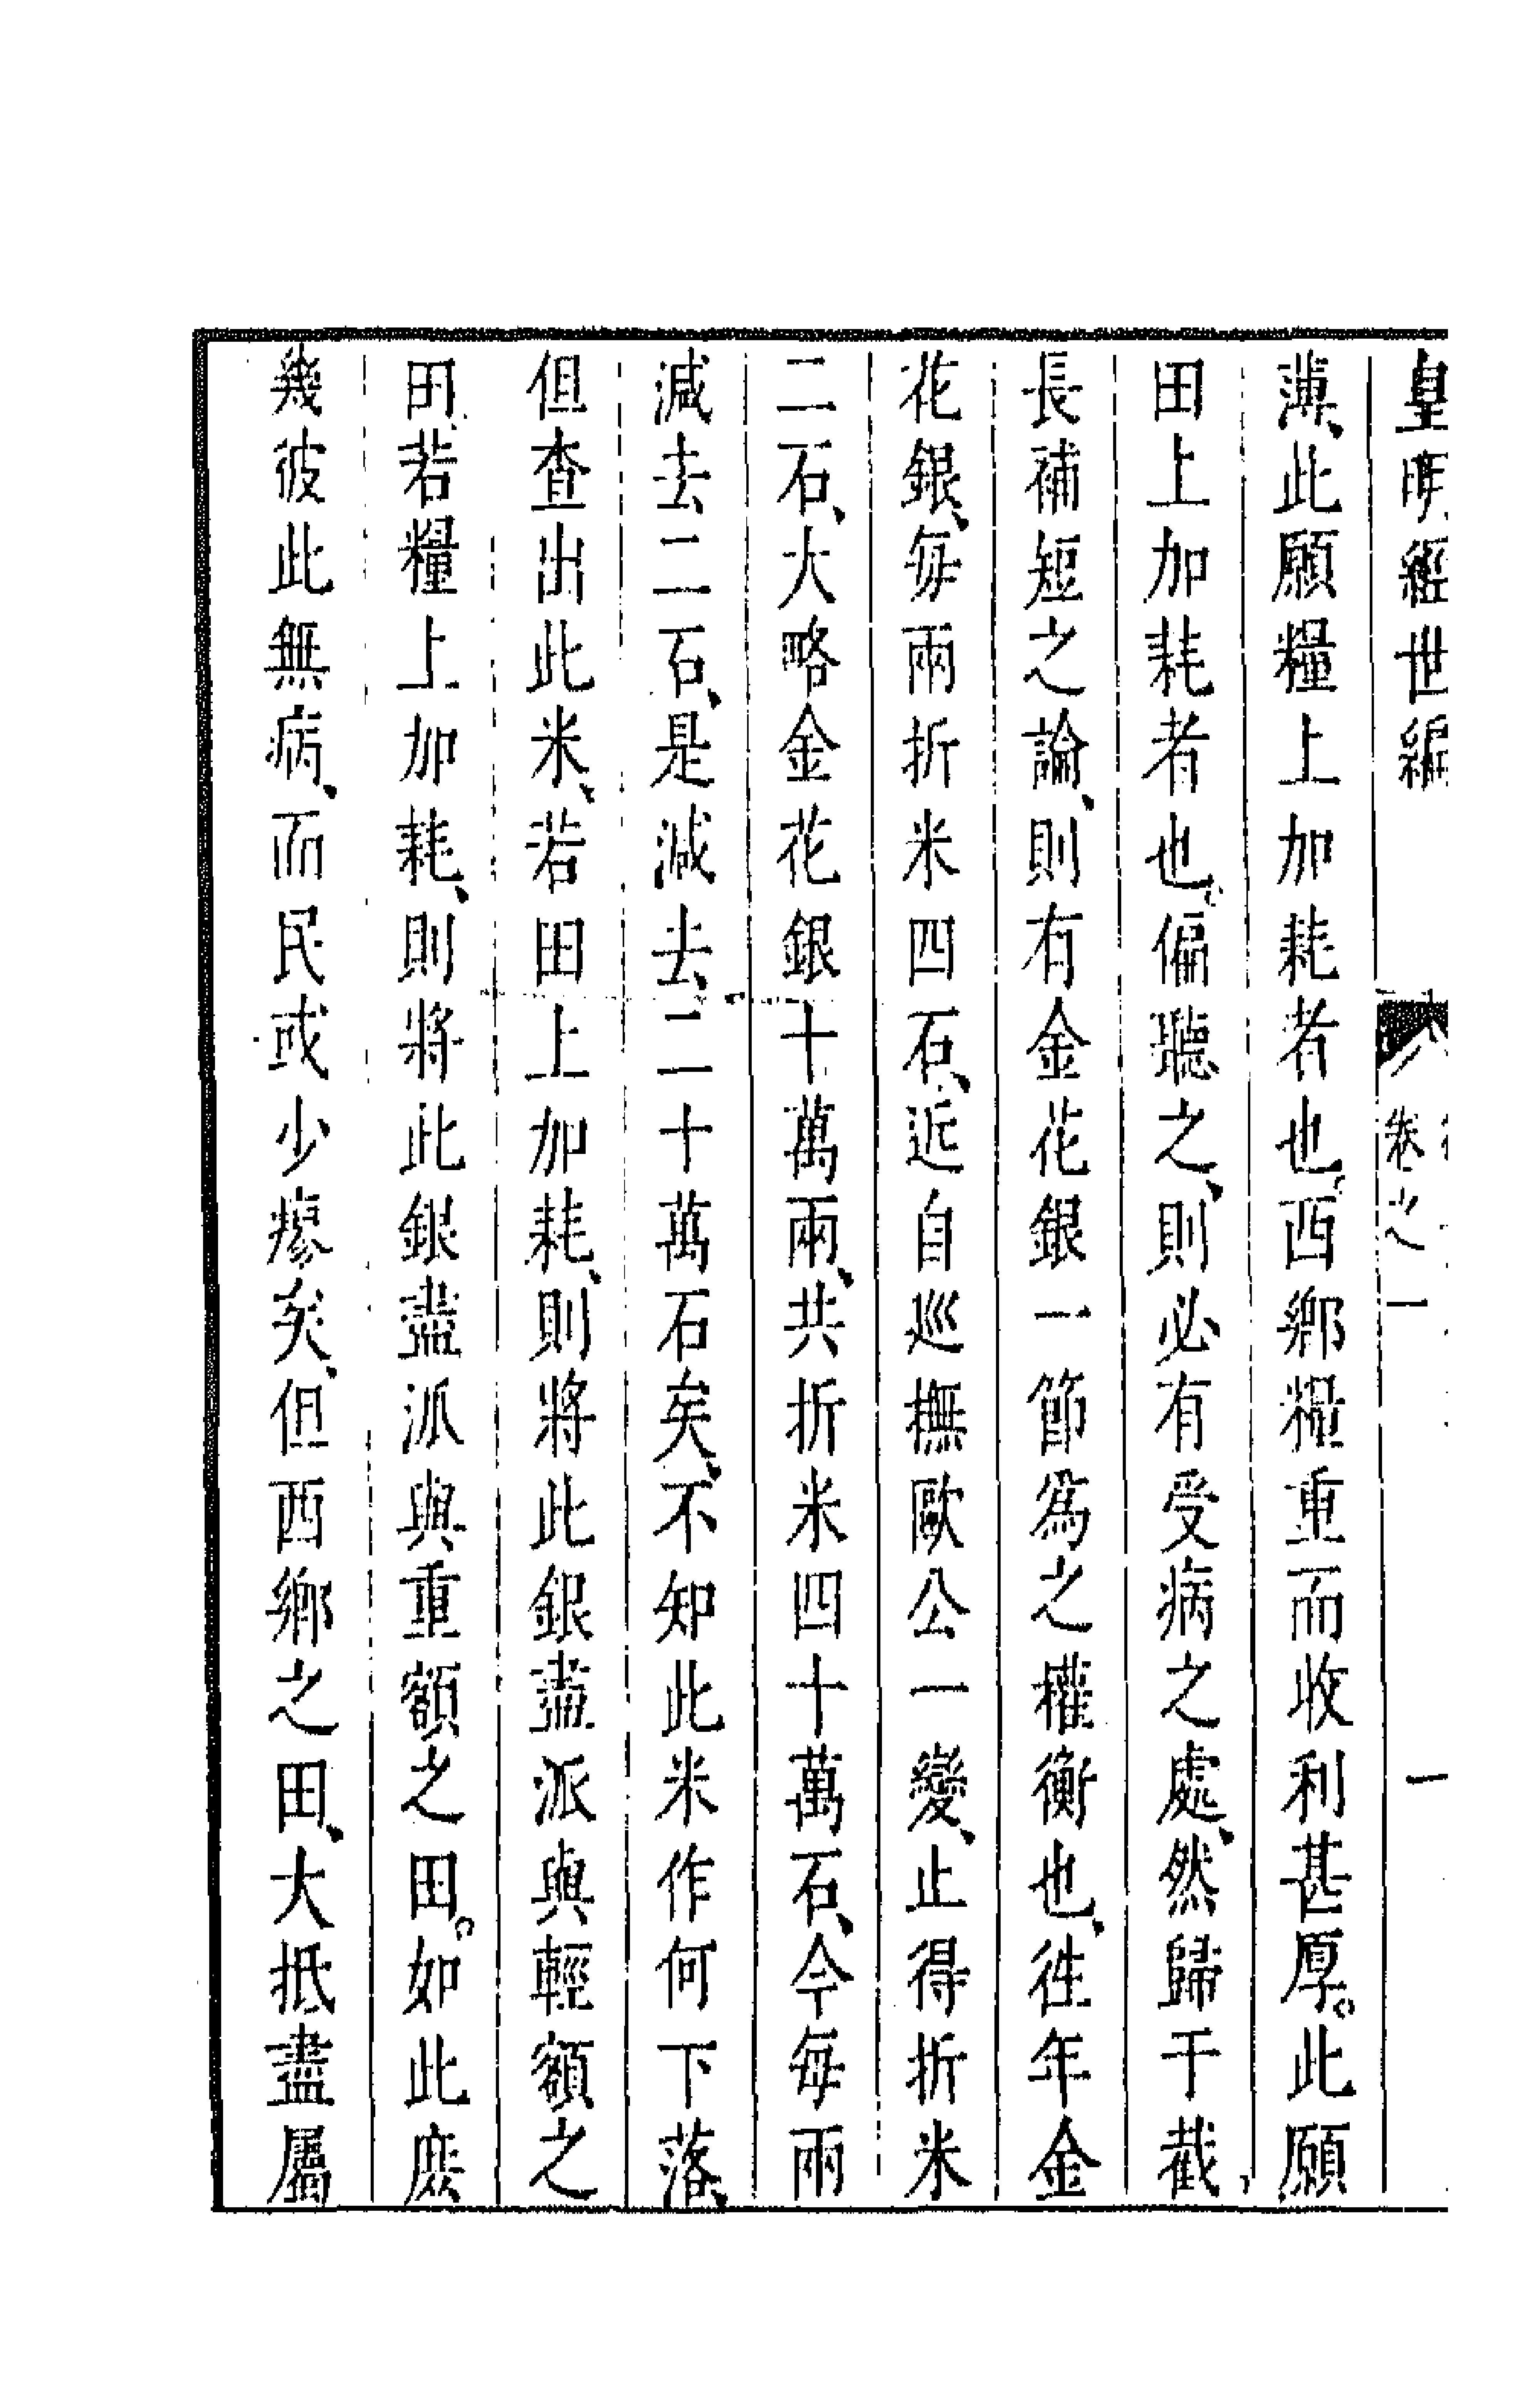 皇明經世編 卷之一 一
薄、此願糧上加耗者也。西鄉糧重而收利甚厚。此願
田上加耗者也。偏聽之、則必有受病之處、然歸于截
長補短之論、則有金花銀一節爲之權衡也、徃年金
花銀、每兩折米四石、近自巡撫歐公一變、止得折米
二石、大略金花銀十萬兩、共折米四十萬石、今每兩
減去二石、是減去二十萬石矣、不知此米作何下落、
但查出此米、若田上加耗、則將此銀盡派與輕額之
田、若糧上加耗、則將此銀盡派與重額之田。如此庶
幾彼此無病、而民或少瘳矣、但西鄉之田、大抵盡屬